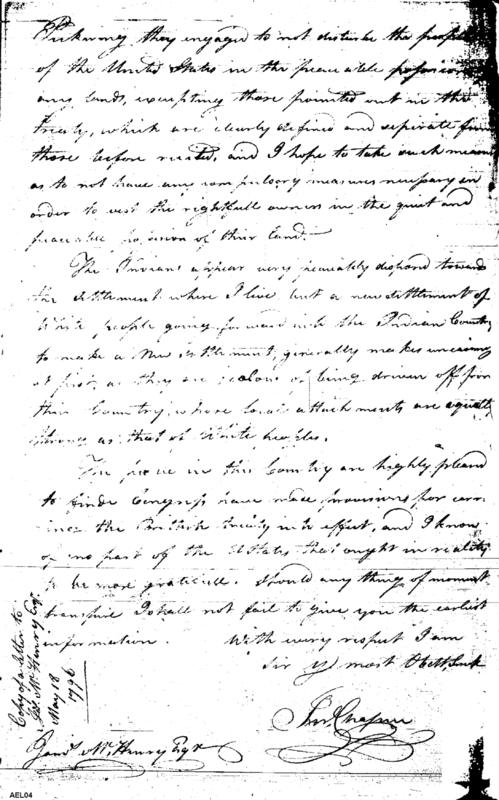 Pickering they engaged to not disturbe the people
of the United States in the peaceable possession
any lands, excepting those pointed out in the
treaty, which are clearly defined and seperate from
those before recited, and I hope to take such measures
as to not have any compulsory measures necessary in
order to vest the rightfull owners in the quiet and
peaceable possession of their land.
The Indians appear very peaceably disposed towards
the settlement where I live but a new settlement of
White people going forward into the Indian Country
to make a new settlement, generally makes uneasiness
at first, as they are jealous of being driven off from
their Country, whose local attachments are equally
strong as that of White peoples.
The people in this Country are highly pleased
to finde Congress have made provisions for carr-
the British treaty into effect, and I know
of no part of the States that ought in reality
to be more gratefull. Should any thing of moment
transpire I shall not fail to give you the earliest
information. With every respect I am
Sir yr most Obdt Servt
Chapin
James McHenry Esqr
Copy of a letter to
Jas McHenry Esqr
May 18
1796
AEL04